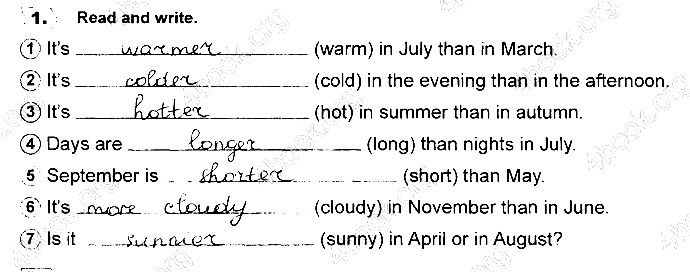 1. Read and write.
1 It's warmer (warm) in July than in March.
2 It's colder (cold) in the evening than in the afternoon.
3 It's hotter (hot) in summer than in autumn.
4 Days are longer (long) than nights in July.
5 September is shorter (short) than May.
6 It's more cloudy (cloudy) in November than in June.
7 Is it sunnier (sunny) in April or in August?